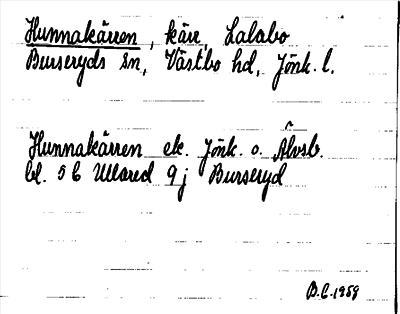 Hunnakärren, kärr, Lalabo
Burseryds sn, Västbo hd, Jönk. l.
Hunnakärren ek. Jönk. o. Älvsb.
bl. 5 C Ullared 9 j Burseryd
B.C. 1959